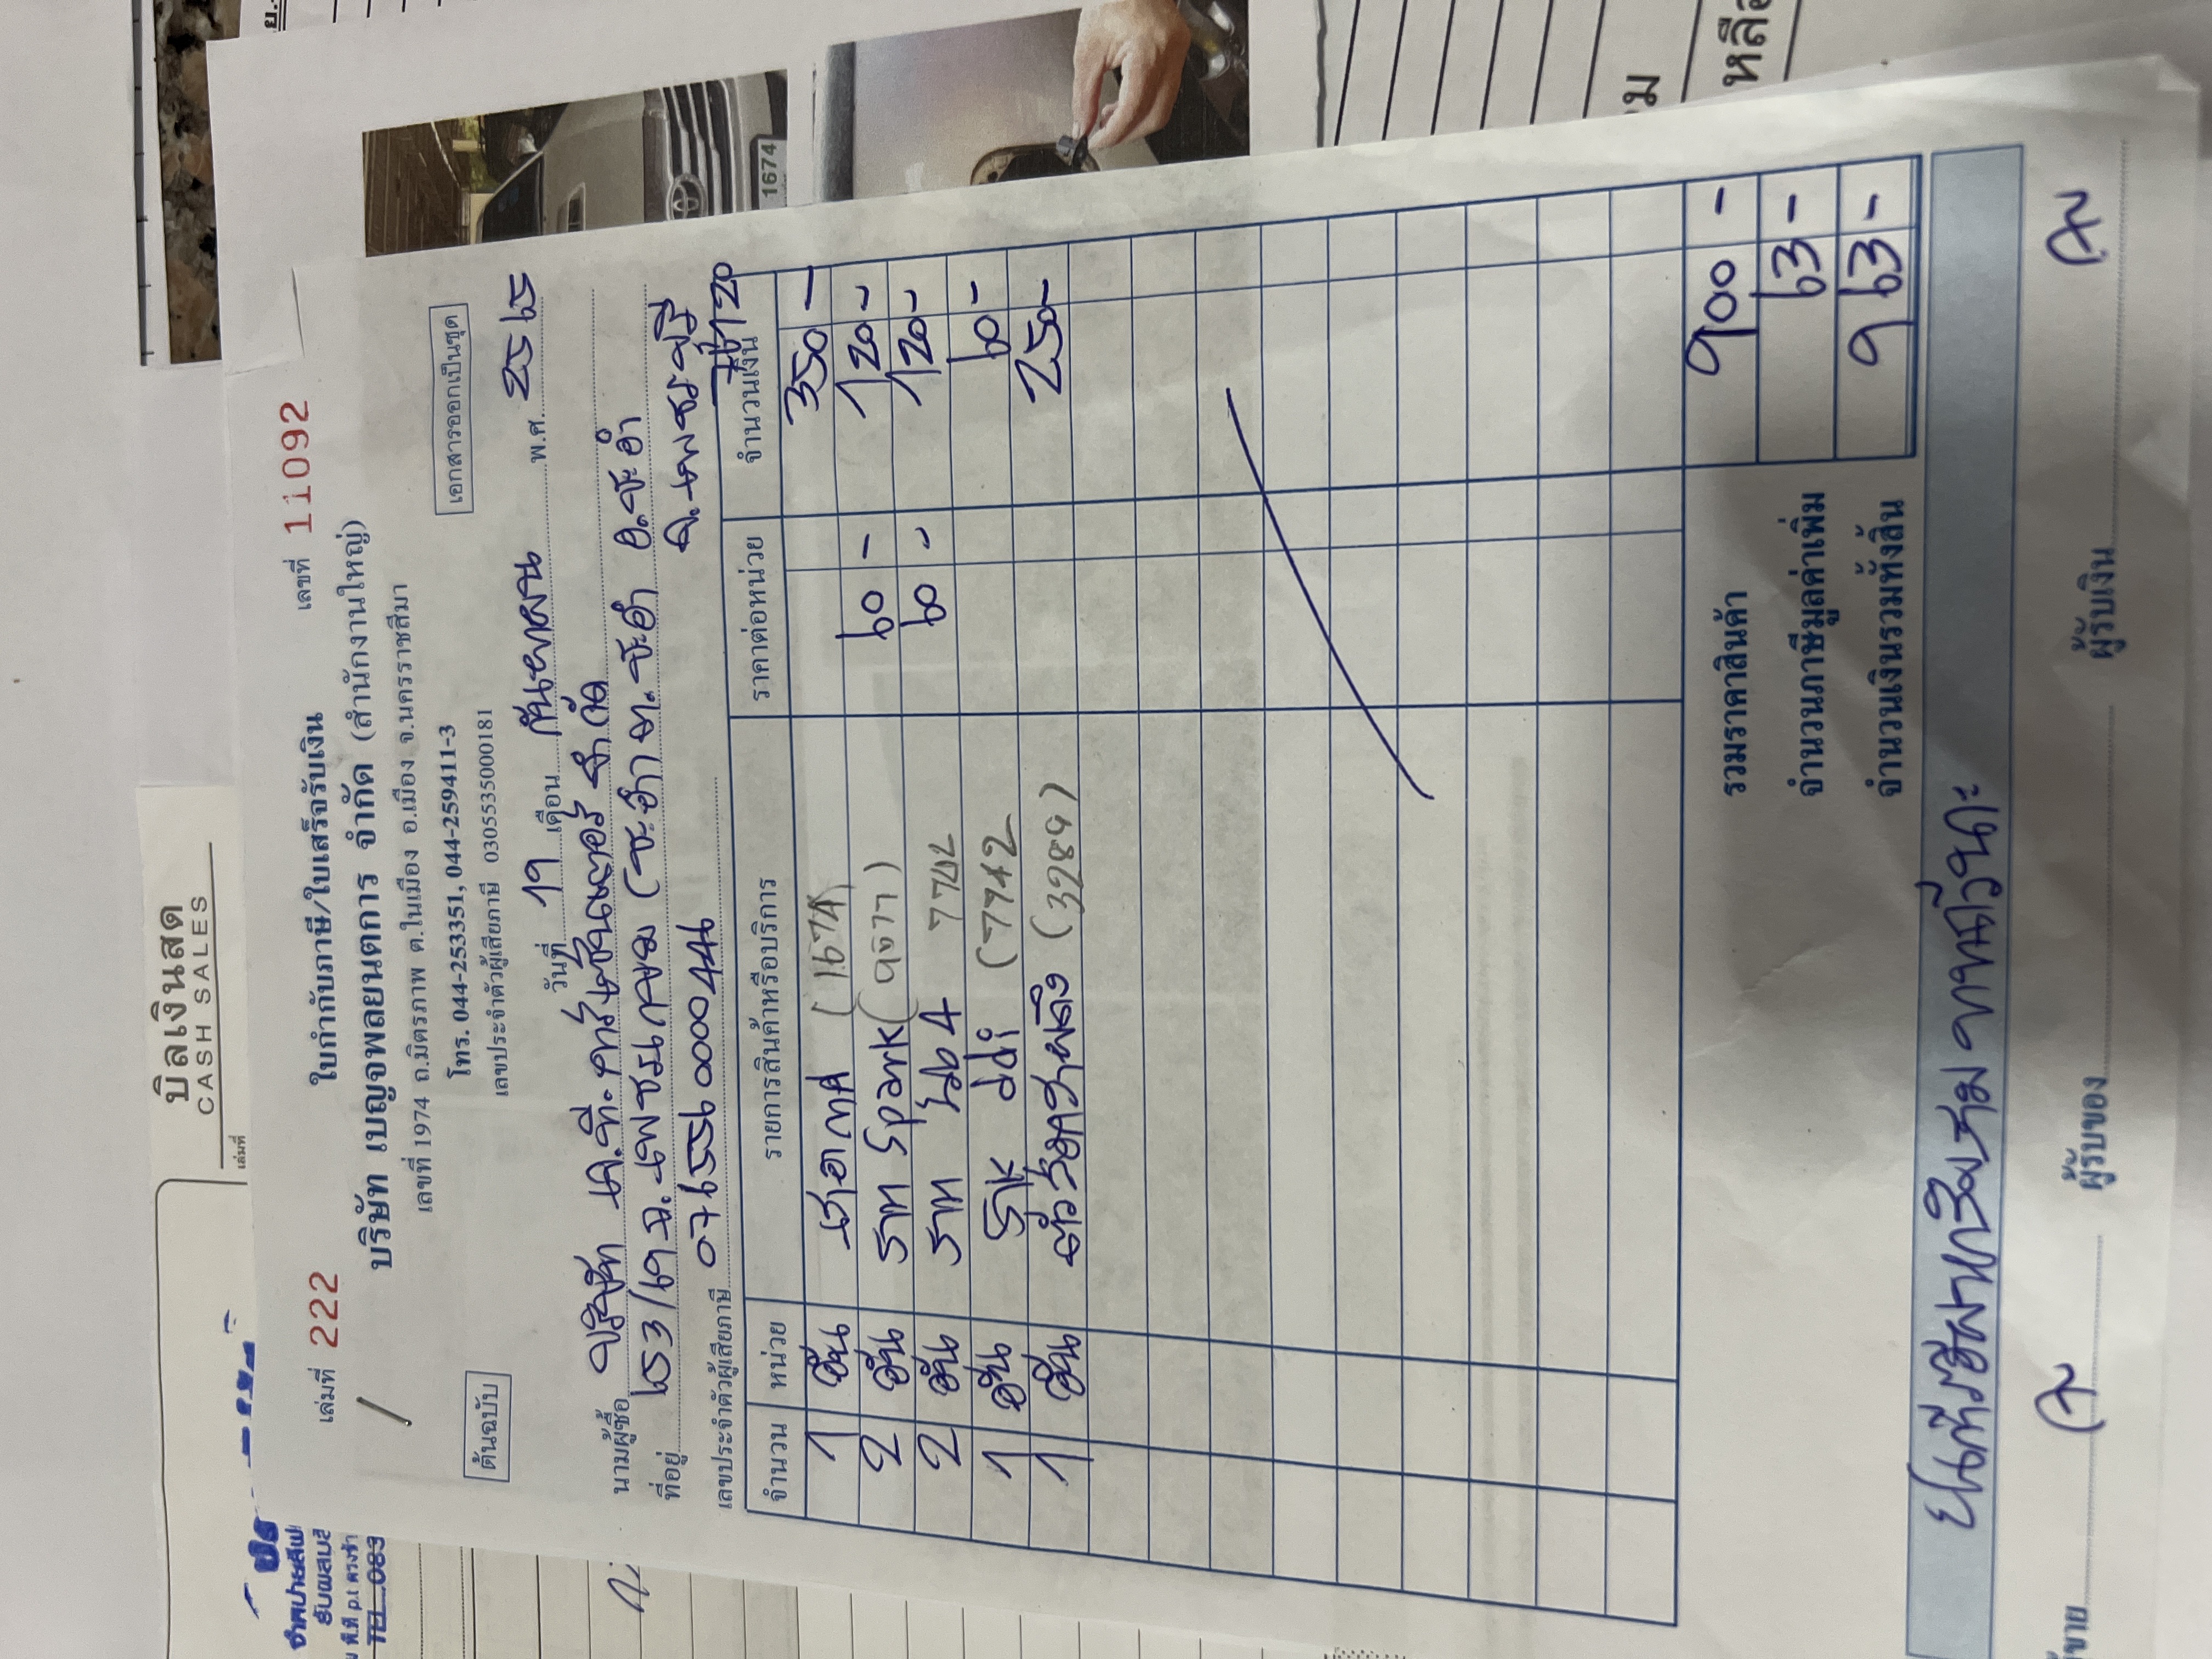 บิลเงินสด
CASH SALES
เล่มที่
เล่มที่ 222 ใบกำกับภาษี/ใบเสร็จรับเงิน เลขที่ 11092
บริษัท เบญจพลยนตการ จำกัด (สำนักงานใหญ่)
เลขที่ 1974 ถ.มิตรภาพ ต.ในเมือง อ.เมือง จ.นครราชสีมา
โทร. 044-253351, 044-259411-3
ต้นฉบับ เลขประจำตัวผู้เสียภาษี 0305535000181 เอกสารออกเป็นชุด
วันที่ 19 เดือน กันยายน พ.ศ. 2565
นามผู้ซื้อ บริษัท เค.ที. จำกัด
ที่อยู่ 653/ ถ.เพชรเกษม (ชะอำ ต.ชะอำ อ.ชะอำ
จ.เพชรบุรี
เลขประจำตัวผู้เสียภาษี 0765560000446 76120
จำนวน หน่วย รายการสินค้าหรือบริการ ราคาต่อหน่วย จำนวนเงิน
1 อัน (1674) 350 -
2 อัน รท Spark (9677) 60 - 120 -
2 อัน รท 60 - 120 -
1 อัน ddi (7742) 60 -
1 อัน (3289) 250 -
รวมราคาสินค้า 900 -
จำนวนภาษีมูลค่าเพิ่ม 63 -
จำนวนเงินรวมทั้งสิ้น 963 -
ผู้รับของ ผู้รับเงิน
1674
หลือ
TEL 083